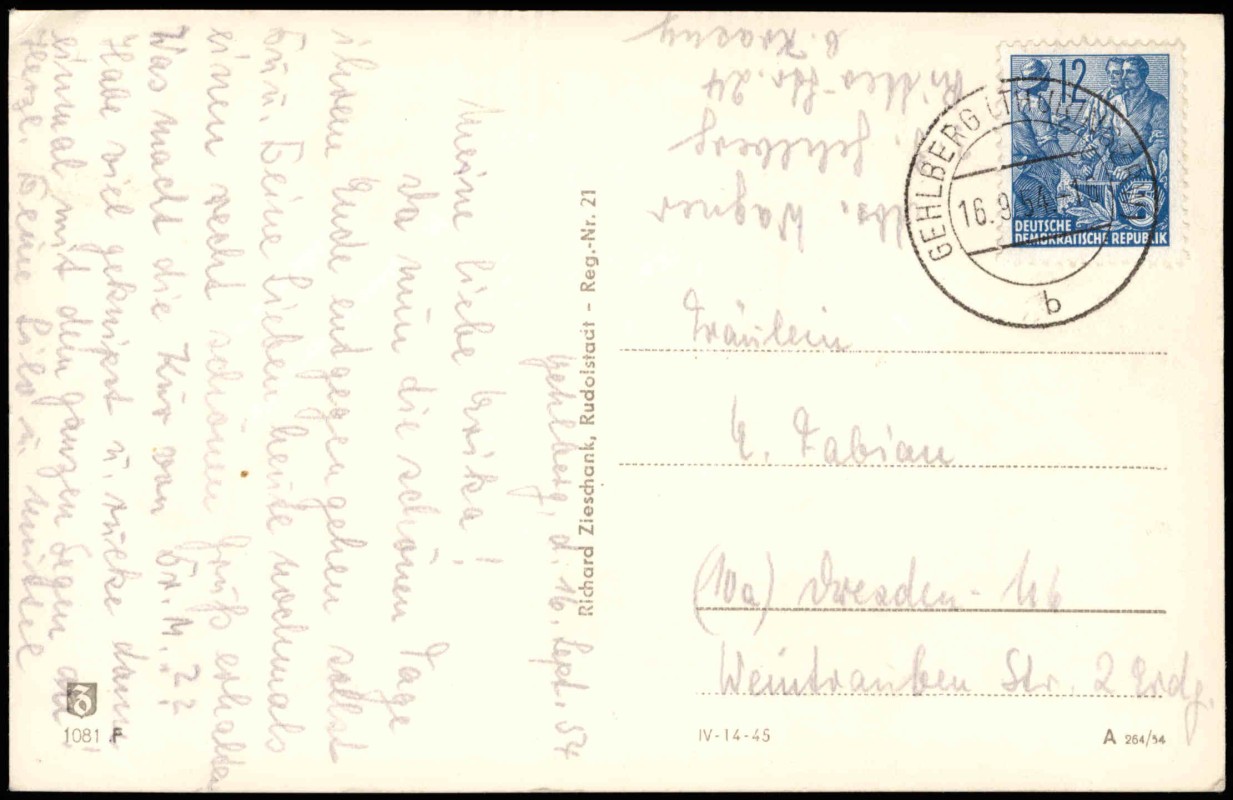 Gehlberg, d. 16. Sept. 54
Meine liebe Erika!
Da nun die schönen Tage
ihrem Ende entgegengehen sollst
Du u. Deine Lieben heute nochmals
einen recht schönen Gruß erhalten
Was macht die Kur von Dr. M.??
Habe viel geknipst u. rücke dann
einmal mit dem ganzen Segen an!
Herzl. Deine Lilo u. Mutter
Richard Zieschank, Rudolstadt - Reg.-Nr. 21
Abs. Wagner
Gehlberg
Ritter-Str. 24
b. Kraeny
12
DEUTSCHE
DEMOKRATISCHE REPUBLIK
GEHLBERG (THÜRINGEN)
16.9.54
b
Fräulein
E. Fabian
(10a) Dresden-N6
Weintrauben Str. 2 Erdg.
1081 F
IV-14-45
A 264/54